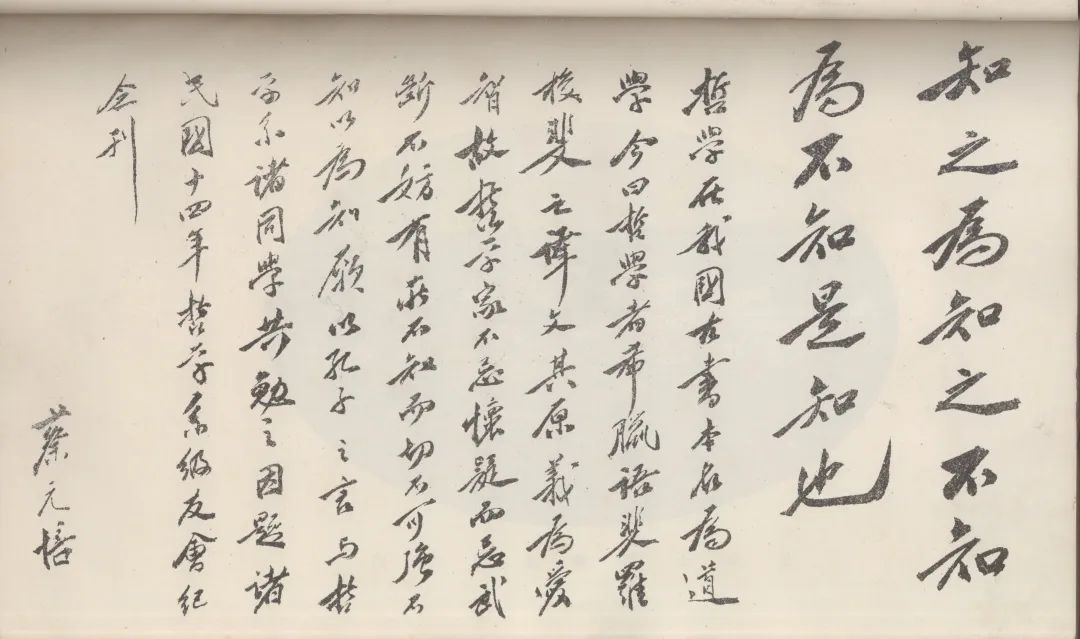 知之為知之不知
為不知是知也
哲學在我國古書本名為道
學今曰哲學者希臘語斐羅
梭斐之譯文其原義為愛
智故哲學家不忌懷疑而忌武
斷不妨有所不知而切不可強不
知以為知願以孔子之言與哲
學系諸同學共勉之因題諸
民國十四年哲學系級友會紀
念刊
蔡元培